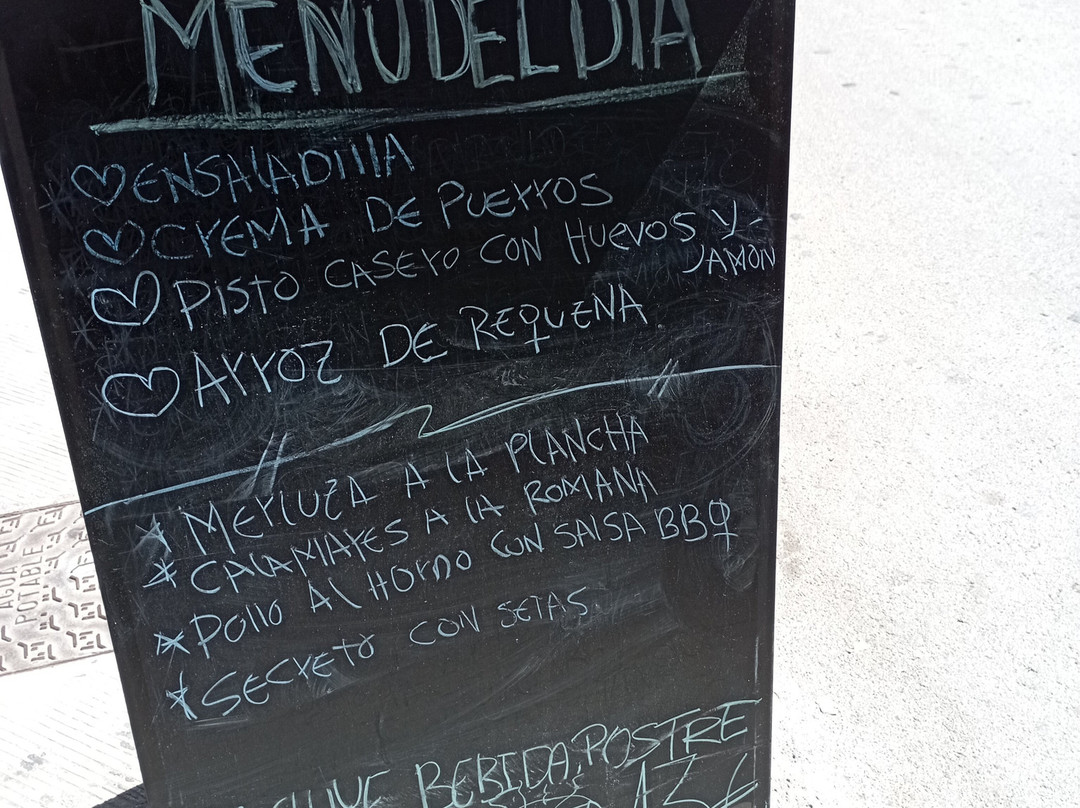 MENU DEL DIA
ENSALADILLA
CREMA DE PUERROS
PISTO CASERO CON HUEVOS Y
JAMON
ARROZ DE REQUENA
MERLUZA A LA PLANCHA
CALAMARES A LA ROMANA
POLLO AL HORNO CON SALSA BBQ
SECRETO CON SETAS
BEBIDA, POSTRE
AGUA
POTABLE